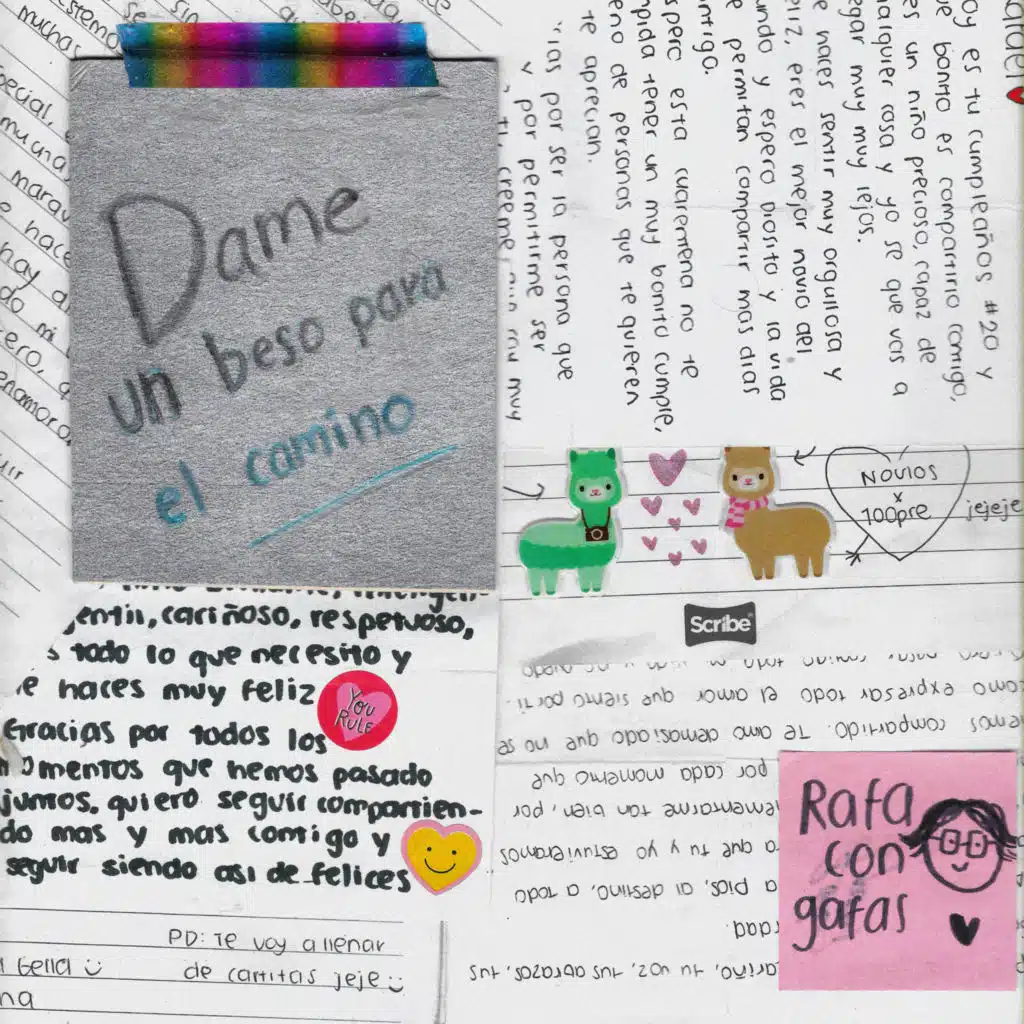 muchas
Dame
un beso para
el camino
hoy es tu cumpleaños #20 y
que bonito es compartirlo contigo,
es un niño precioso, capaz de
cualquier cosa y yo se que vas a
llegar muy muy lejos.
me haces sentir muy orgullosa y
feliz, eres el mejor novio del
mundo y espero Diosito y la vida
me permitan compartir mas dias
contigo.
espero esta cuarentena no te
impida tener un muy bonito cumple,
lleno de personas que te quieren
y te aprecian.
por ser la persona que
y por permitirme ser
NOVIOS
x
100pre
jejeje
Scribe
gentil, cariñoso, respetuoso,
todo lo que necesito y
me haces muy feliz
YOU
RULE
Gracias por todos los
momentos que hemos pasado
juntos, quiero seguir compartien-
do mas y mas contigo y
seguir siendo asi de felices
como expresar todo el amor que siento por ti.
hemos compartido. Te amo demasiado que no se
por cada momento que
tan bien, por
que tu y yo estuvieramos
a Dios, al destino, a todo
cariño, tu voz, tus abrazos, tus
Rafa
con
gafas
PD: Te voy a llenar
de cartitas jeje